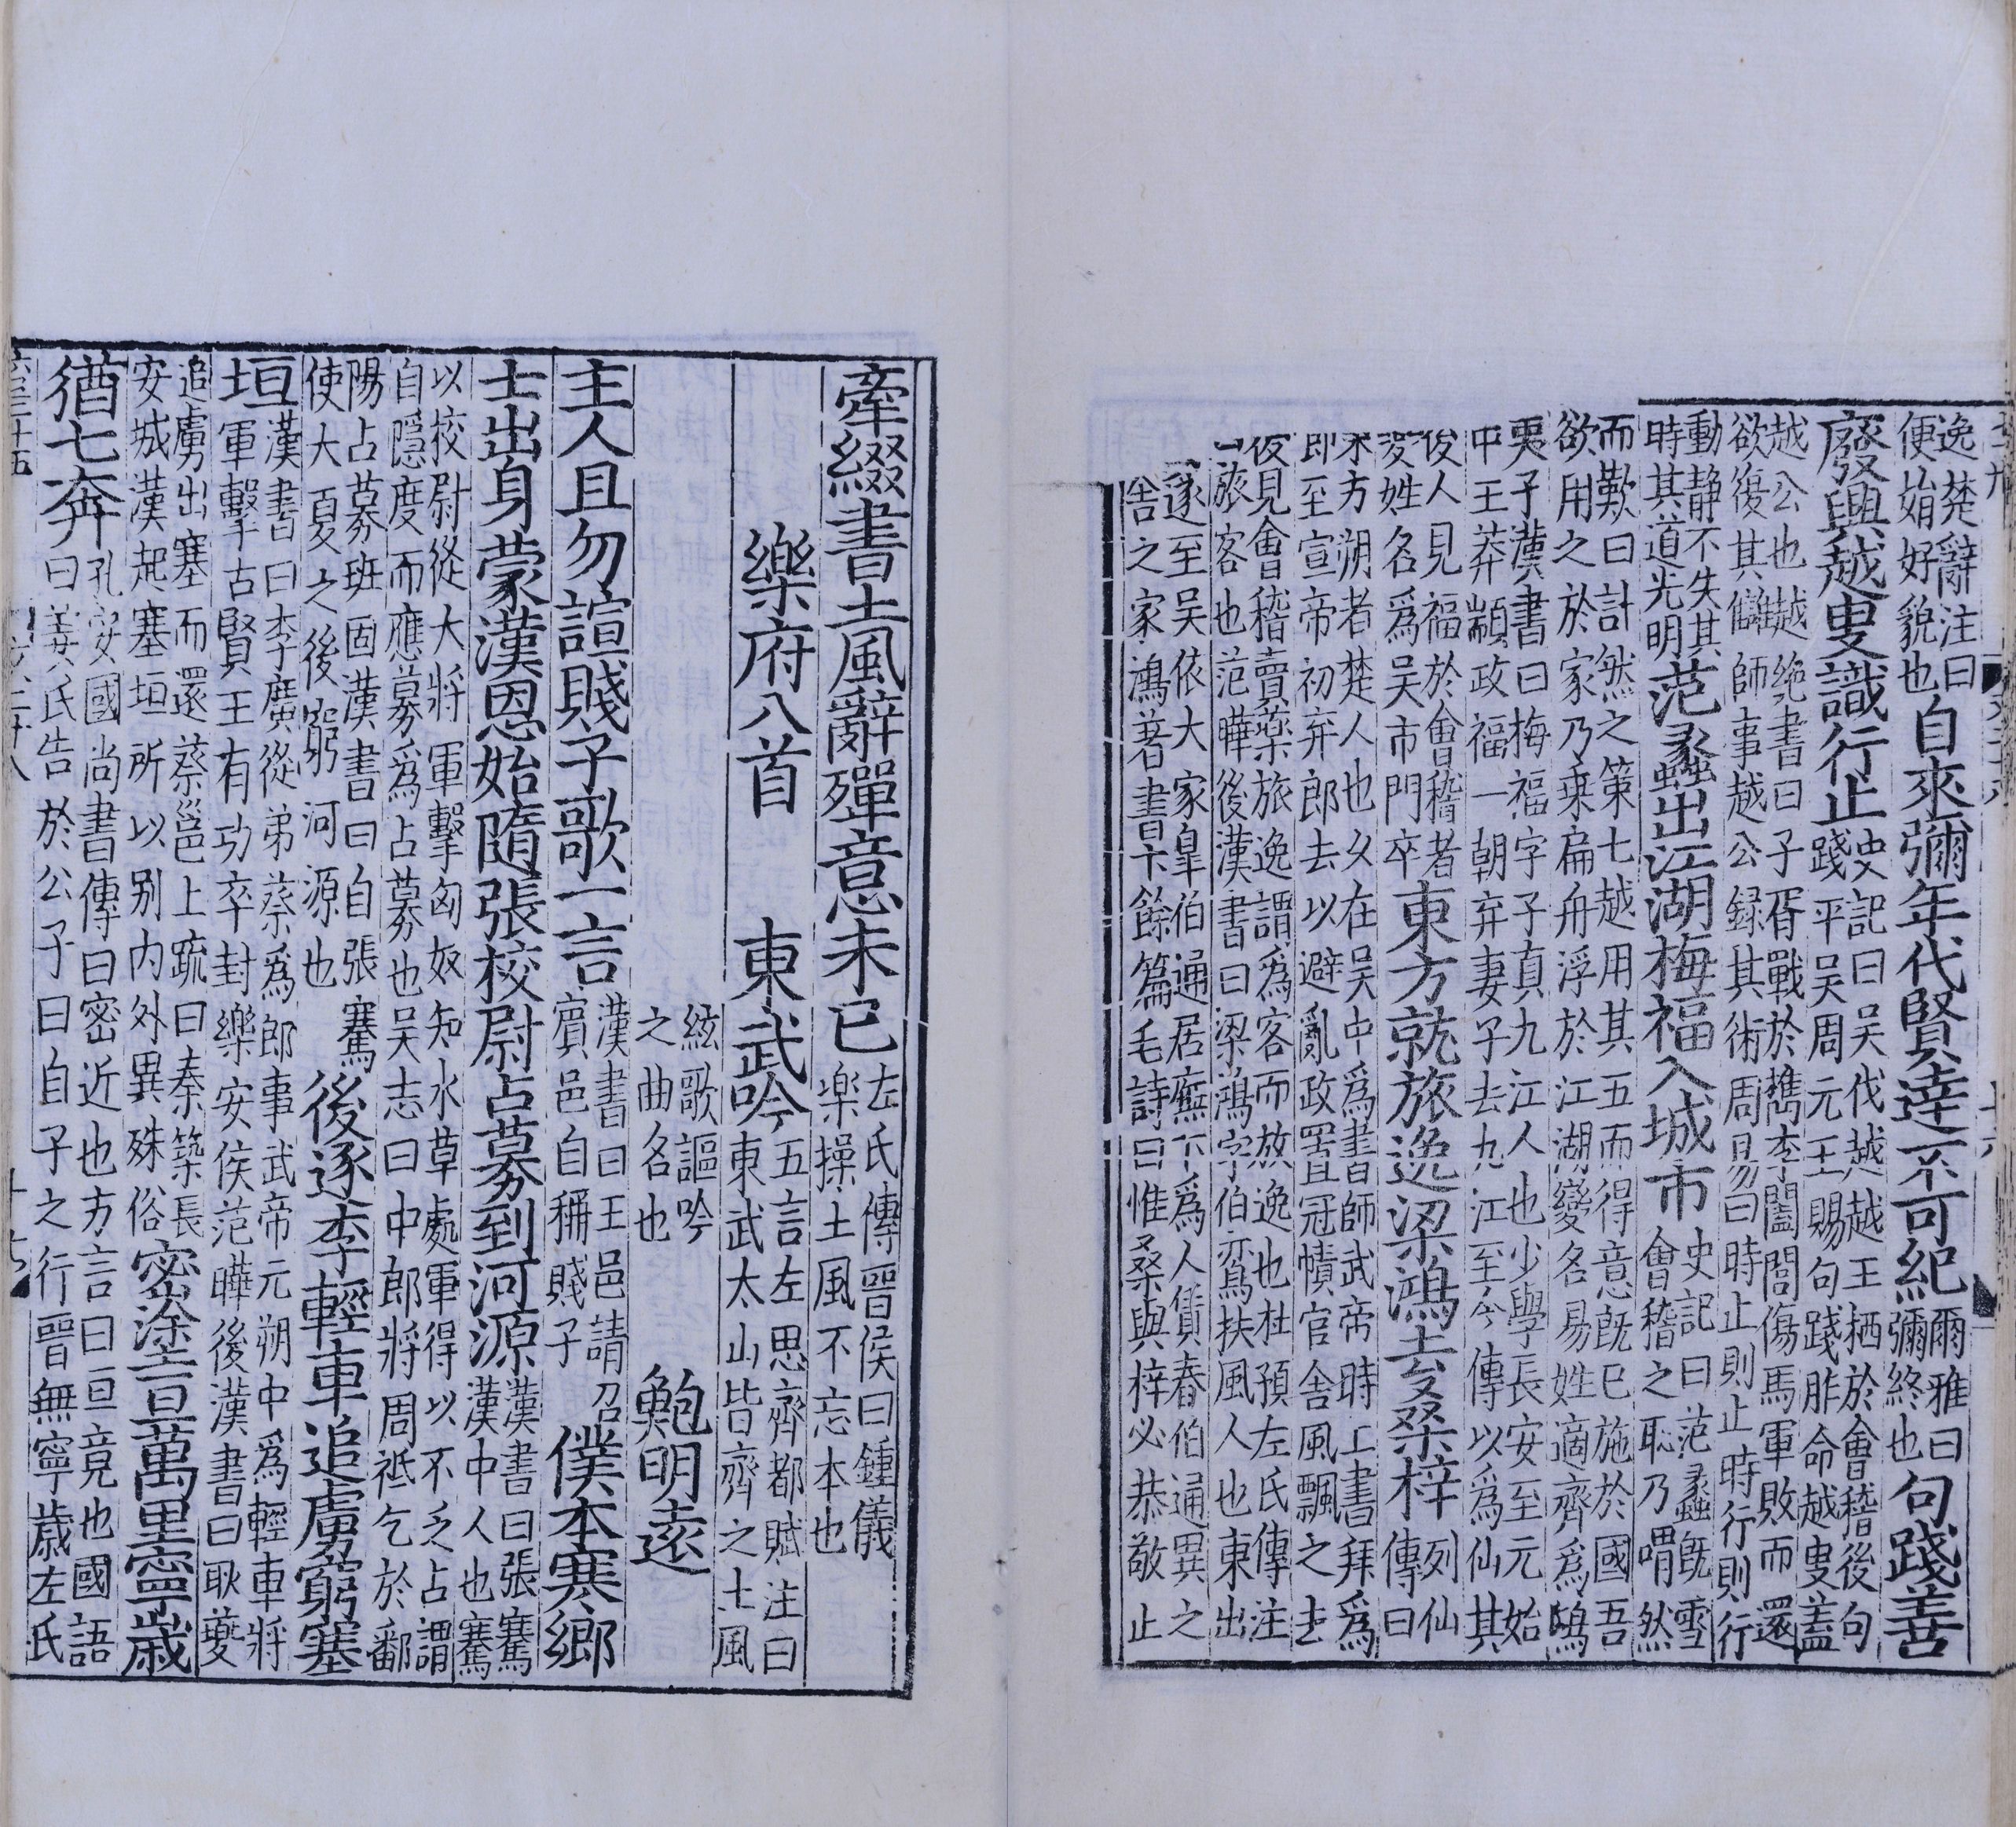 逸楚辭注曰
便娟好貌也
自來彌年代賢達不可紀
爾雅曰
彌終也
句踐善
廢興越叟識行止
史記曰吳伐越越王栖於會稽後句
踐平吳周元王賜句踐胙命越叟蓋
越公也越絶書曰子胥戰於檇李闔閭傷馬軍敗而還
欲復其讎師事越公録其術周易曰時止則止時行則行
動静不失其
時其道光明
范蠡出江湖梅福入城市
史記曰范蠡旣雪
會稽之恥乃喟然
而歎曰計然之策七越用其五而得意旣已施於國吾
欲用之於家乃乗扁舟浮於江湖變名易姓適齊爲鴟
夷子漢書曰梅福字子真九江人也少學長安至元始
中王莽顓政福一朝弃妻子去九江至今傳以爲仙其
後人見福於會稽者
変姓名爲吴市門卒
東方就旅逸梁鴻去桑梓
列仙
傳曰
東方朔者楚人也乆在吴中爲書師武帝時上書拜爲
郎至宣帝初弃郎去以避亂政置冠幘官舎風飄之去
後見會稽賣藥旅逸謂爲客而放逸也杜預左氏傳注
曰旅客也范曄後漢書曰梁鴻字伯鸞扶風人也東出
遂至吴依大家皐伯通居廡下爲人賃舂伯通異之
舎之家鴻著書十餘篇毛詩曰惟桑與梓必恭敬止
牽綴書土風辭殫意未已
左氏傳晋侯曰鍾儀
楽操土風不忘本也
樂府八首
東武吟
五言左思齊都賦注曰
東武太山皆齊之土風
絃歌謳吟
之曲名也
鮑明遠
主人且勿諠賤子歌一言
漢書曰王邑請召
賔邑自稱賤子
僕本寒鄉
士出身蒙漢恩始隨張校尉占募到河源
漢書曰張騫
漢中人也騫
以校尉從大將軍擊匈奴知水草處軍得以不乏占謂
自隱度而應募爲占募也吴志曰中郎將周祗乞於鄱
陽占募班固漢書曰自張騫
使大夏之後窮河源也
後逐李輕車追虜窮塞
垣
漢書曰李廣從弟蔡爲郎事武帝元朔中爲輕車將
軍擊古賢王有功卒封樂安侯范曄後漢書曰耿夔
追虜出塞而還蔡邕上疏曰秦築長
安城漢起塞垣所以别内外異殊俗
密塗亘萬里寧歲
猶七奔
孔安國尚書傳曰密近也方言曰亘竟也國語
曰姜氏告於公子曰自子之行晋無寧歳左氏